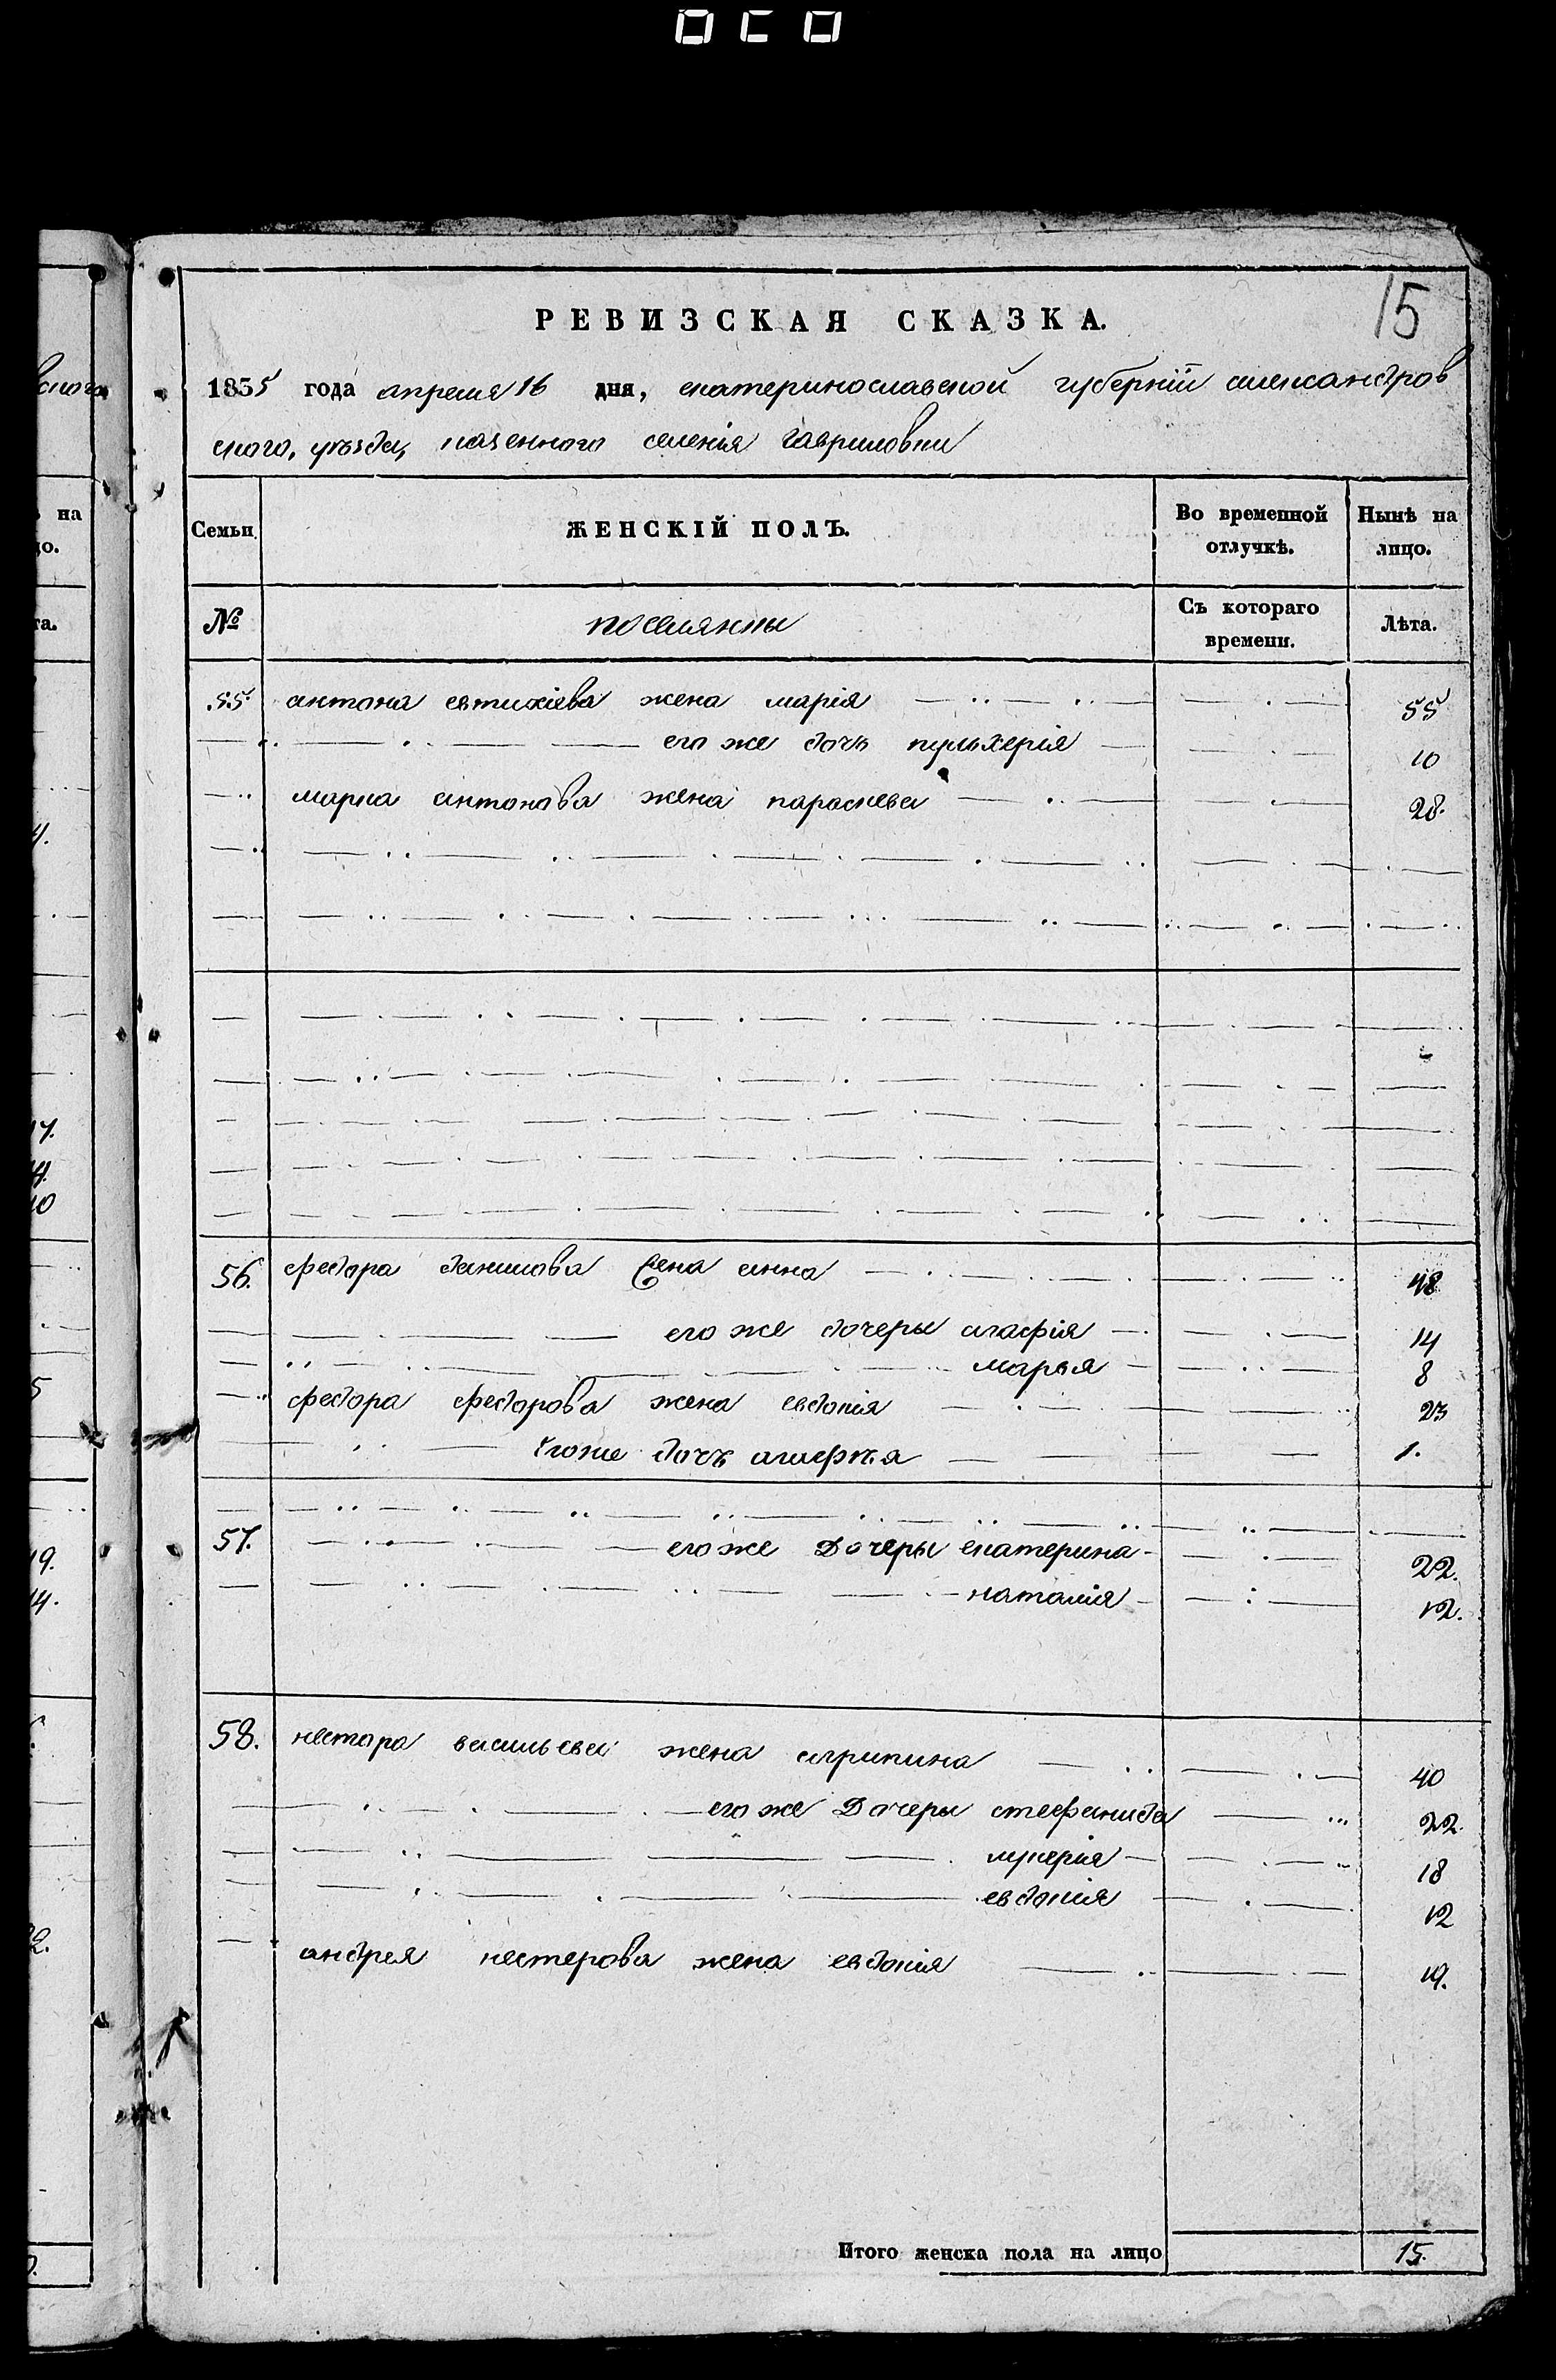 15
РЕВИЗСКАЯ СКАЗКА.
1835 года апреля 16 дня, екатеринославской губернiи александров
ского, уѣзда, казенного селенiя гавриловки
Семьи ЖЕНСКІЙ ПОЛЪ. Во временной отлучкѣ. Нынѣ на лицо.
№ поселянки Съ котораго времени. Лѣта.
55 антона евтихiева жена марiя 55
его же дочь пульхерiя 10
марка антонова жена параскева 28.
56. федора данилова жена анна 48
его же дочеры агафiя 14
марья 8
федора федорова жена евдокiя 23
егоже дочъ агафѣя 1.
57. его же Дочеры екатерина 22.
наталiя 12.
58. нестора васильева жена агрипина 40
его же Дочеры стефанида 22.
лукерiя 18
евдокiя 12
андрея нестерова жена евдокiя 19.
Итого женска пола на лицо 15.